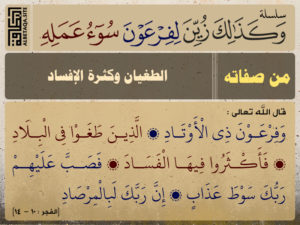 سلسلة
وَكَذَٰلِكَ زُيِّنَ لِفِرْعَوْنَ سُوٓءُ عَمَلِهِ
من صفاته
الطغيان وكثرة الإفساد
قال الله تعالى :
وَفِرْعَوْنَ ذِى الْأَوْتَادِ الَّذِينَ طَغَوْا فِى الْبِلَادِ
فَأَكْثَرُوا فِيهَا الْفَسَادَ فَصَبَّ عَلَيْهِمْ
رَبُّكَ سَوْطَ عَذَابٍ إِنَّ رَبَّكَ لَبِالْمِرْصَادِ
[الفجر : ١٠ - ١٤]